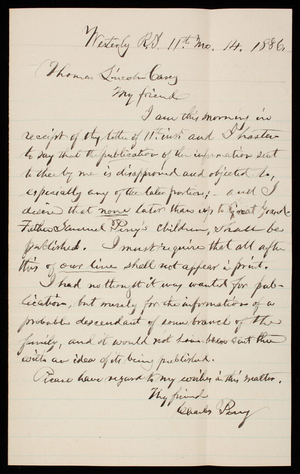 Westerly R.I. 11th Mo. 14. 1886
Thomas Lincoln Casey
My friend
I am this morning in
receipt of thy letter of 11th inst and I hasten
to say that the publication of the information sent
to thee by me is disapproved and objected to,
especially any of the later portion; - and I
desire that none later than up to Great Grand-
Father Samuel Perry's Children, shall be
published. I must require that all after
this of our line shall not appear in print.
I had no thought it was wanted for pub-
lication, but merely for the information of a
probable descendant of some branch of the
family, and it would not have been sent thee
with an idea of its being published.
Please have regard to my wishes in this matter.
Thy friend
Charles Perry